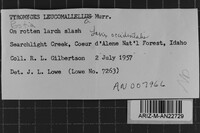 TYROMYCES LEUCOMALLELLUS Murr.
On rotten larch slash
Larix occidentalis
Searchlight Creek, Coeur d'Alene Nat'l Forest, Idaho
Coll. R. L. Gilbertson 2 July 1957
Det. J. L. Lowe (Lowe No. 7263)
AN 007966
ARIZ-M-AN22729